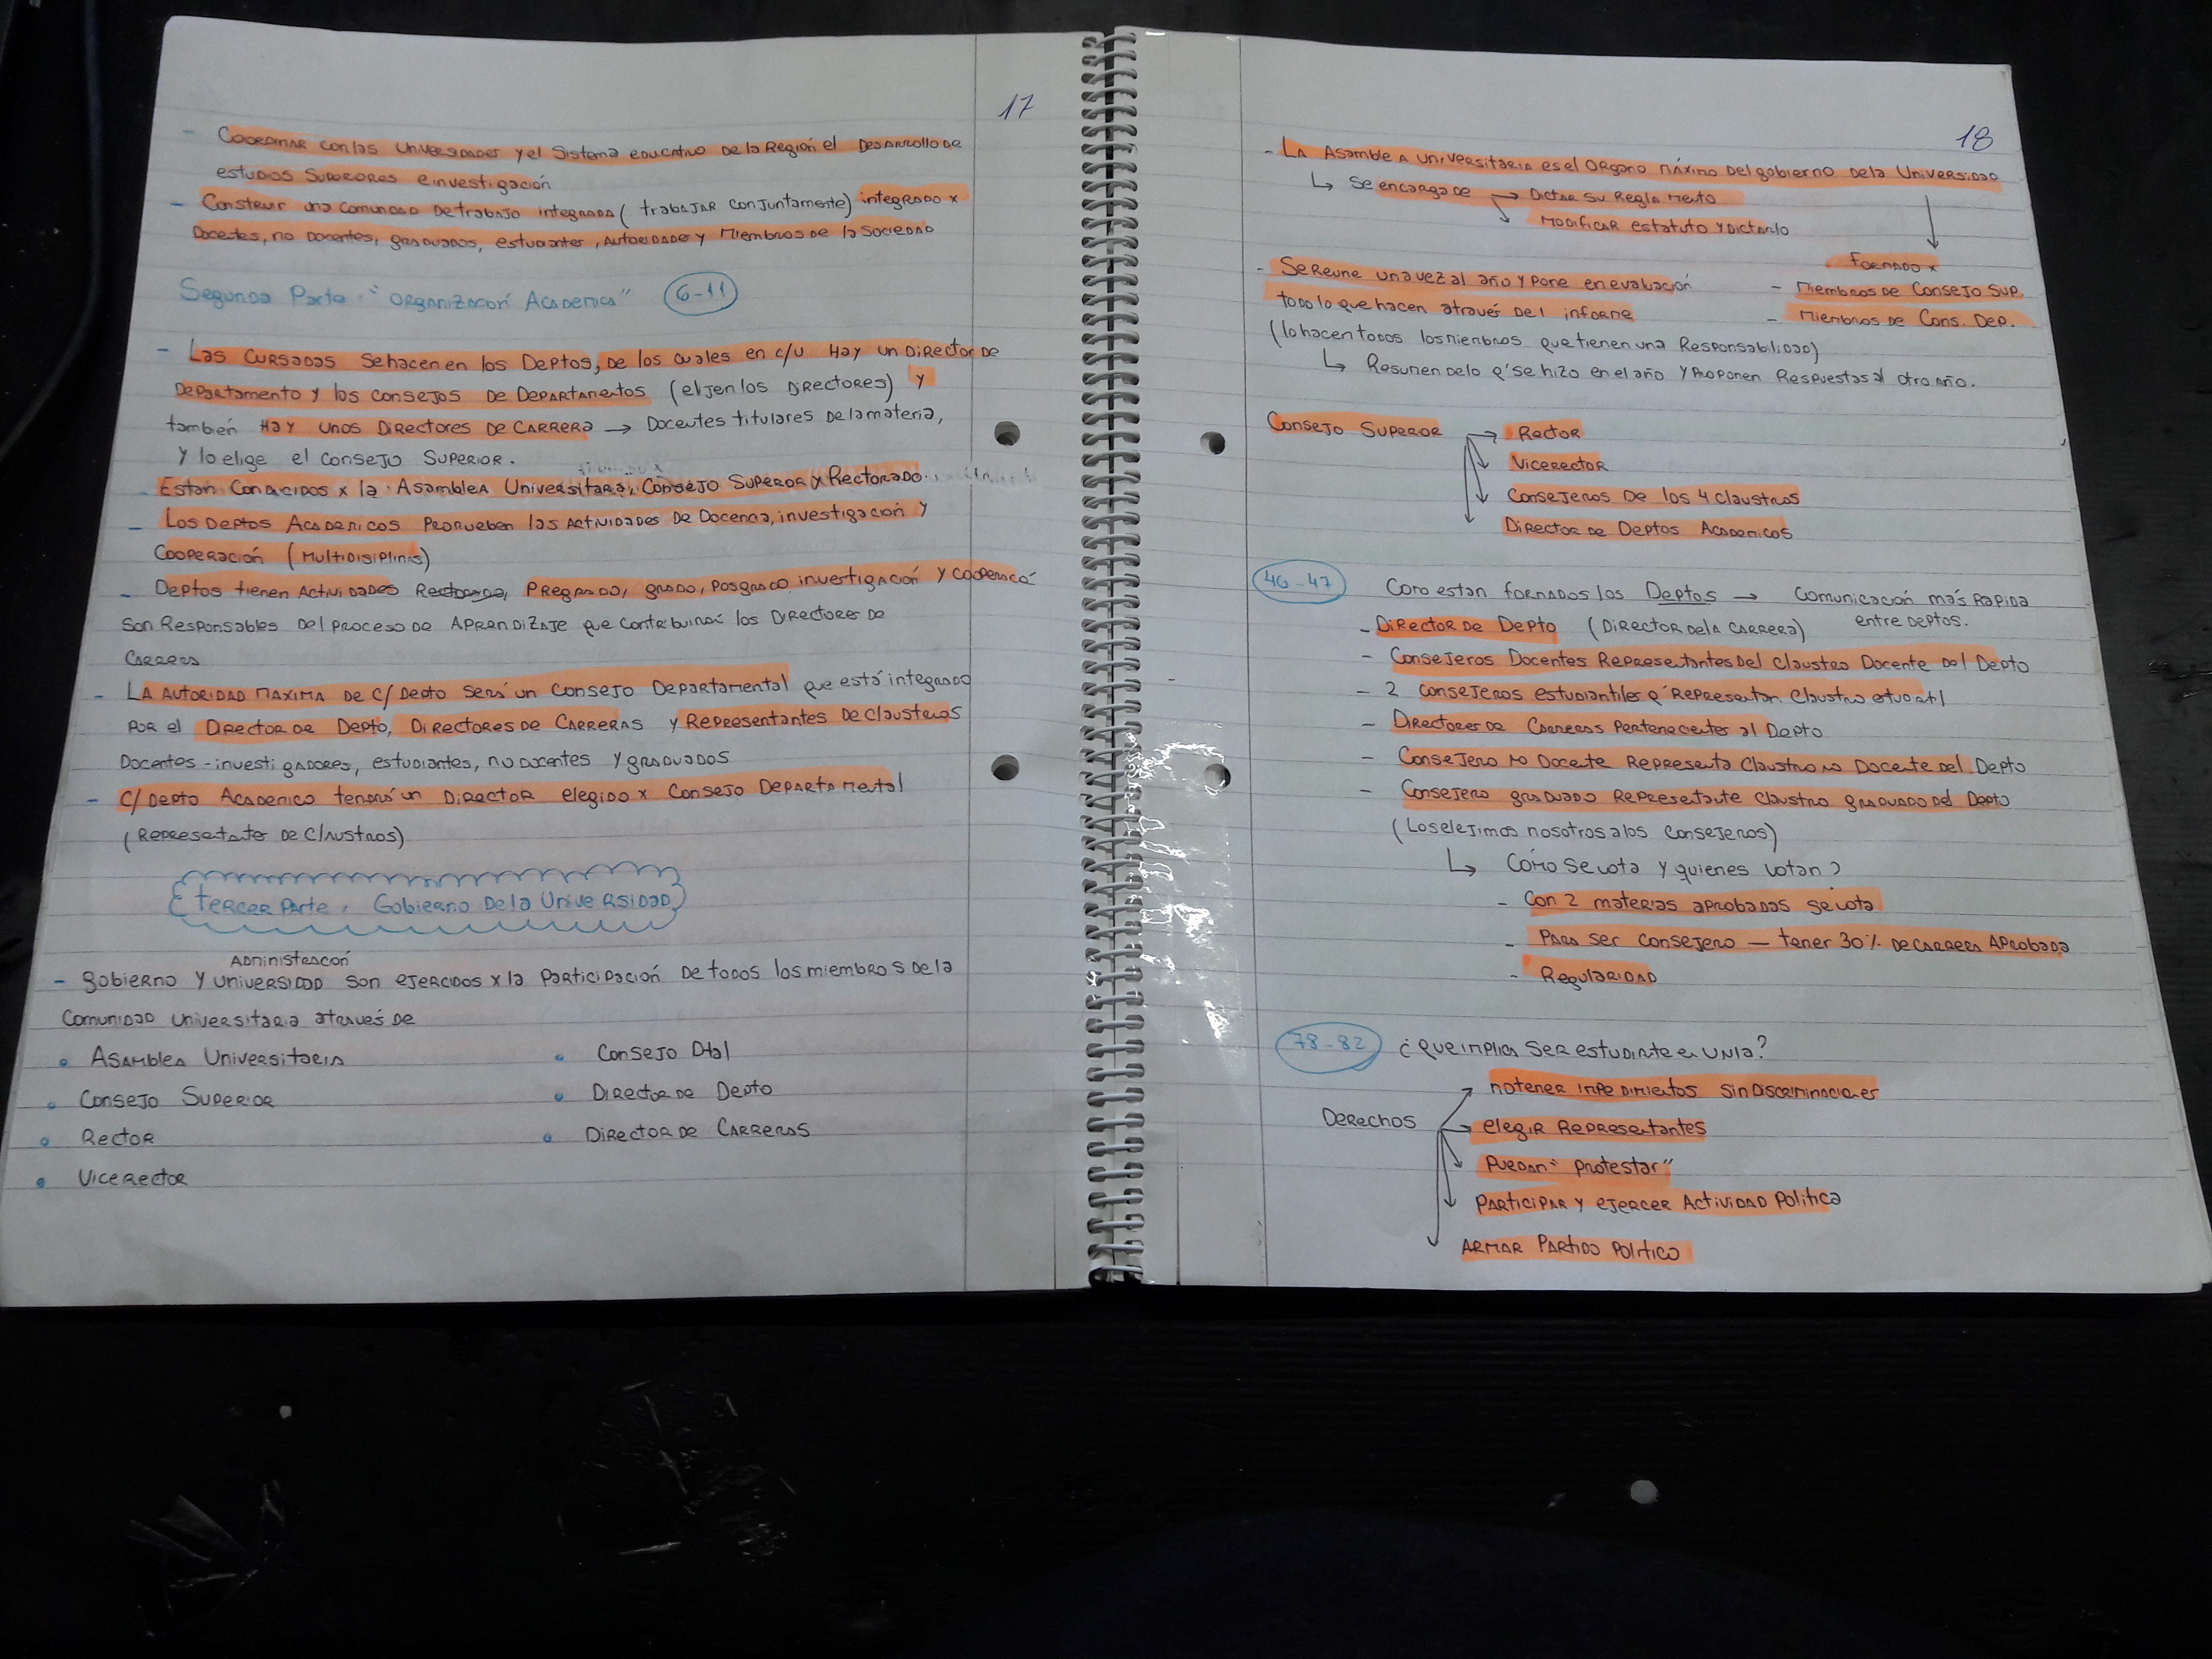 17
- Coordinar con las universidades y el Sistema educativo de la Región el Desarrollo de
estudios Superiores e investigación
- Construir una comunidad de trabajo integrada (trabajar conjuntamente) integrado x
Docentes, no Docentes, graduados, estudiantes, Autoridades y Miembros de la Sociedad
Segunda Parte - "Organización Academica" 6-11
- Las cursadas se hacen en los Deptos, de los cuales en c/u Hay un Director de
Departamento y los consejos de Departamentos (elijen los Directores) y
también Hay unos Directores de Carrera → Docentes titulares de la materia,
y lo elige el Consejo Superior.
- Estan Conducidos x la Asamblea Universitaria, Consejo Superior y Rectorado.
- Los Deptos Academicos Promueben las Actividades de Docencia, investigación y
Cooperación (Multidisiplinas)
- Deptos tienen Actividades Pregrado, grado, Posgrado investigación y Cooperacó
Son Responsables Del Proceso de Aprendizaje que contribuirá los Directores de
Carrera
- La Autoridad Maxima de c/Depto será un Consejo Departamental que está integrado
Por el Director de Depto, Directores de Carreras y Representantes de Claustros
Docentes - investigadores, estudiantes, no docentes y graduados
- C/Depto Academico tendrá un Director elegido x Consejo Departamental
(Representante de Claustros)
Tercer Parte, Gobierno De la Universidad
Administracón
- gobierno y universidad son ejercidos x la Participación De todos los miembros de la
Comunidad universitaria através de
• Asamblea Universitaria
• Consejo Superior
• Rector
• Vicerector
• Consejo Dtal
• Director de Depto
• Director de Carreras
18
- La Asamblea universitaria es el Organo máximo Del gobierno de la Universidad
↳ Se encarga de → Dictar su Reglamento
↘ Modificar estatuto y Dictarlo
Formado x
- Miembros de Consejo Sup.
- Miembros de Cons. Dep.
- Se Reune una vez al año y Pone en evaluación
todo lo que hacen através del informe
(lo hacen todos los miembros que tienen una Responsabilidad)
↳ Resumen de lo q' se hizo en el año y Proponen Respuestas al otro año.
Consejo Superior → Rector
Vicerector
Consejeros De los 4 claustros
Director de Deptos Academicos
46-47 Como estan formados los Deptos → Comunicación más Rapida
entre Deptos.
- Director de Depto (Director de la Carrera)
- Consejeros Docentes Representantes Del Claustro Docente Del Depto
- 2 Consejeros estudiantiles q' Representan Claustro
- Directores de Carreras Pertenecientes al Depto
- Consejero no Docente Representa Claustro no Docente del Depto
- Consejero graduado Representante Claustro graduado del Depto
(Los elejimos nosotros a los Consejeros)
↳ Cómo se vota y quienes votan?
- Con 2 materias aprobadas se vota
- Para ser Consejero — tener 30% de Carrera Aprobada
- Regularidad
78-82 ¿Que implica ser estudiante en UNLa?
Derechos
no tener impedimientos sin Discriminaciones
elegir Representantes
Puedan "Protestar"
Participar y ejercer Actividad Politica
Armar Partido Politico